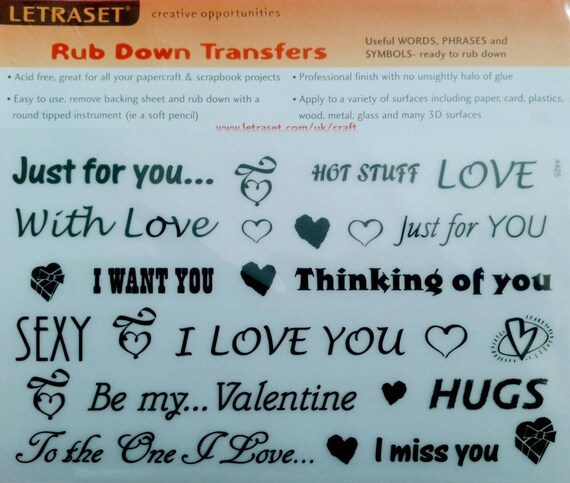 LETRASET® creative opportunities
Rub Down Transfers
Useful WORDS, PHRASES and
SYMBOLS- ready to rub down
• Acid free, great for all your papercraft & scrapbook projects
• Easy to use, remove backing sheet and rub down with a
round tipped instrument (ie a soft pencil)
• Professional finish with no unsightly halo of glue
• Apply to a variety of surfaces including paper, card, plastics,
wood, metal, glass and many 3D surfaces
www.letraset.com/uk/craft
Just for you... HOT STUFF LOVE
With Love Just for YOU
I WANT YOU Thinking of you
SEXY I LOVE YOU
Be my... Valentine HUGS
To the One I Love... I miss you